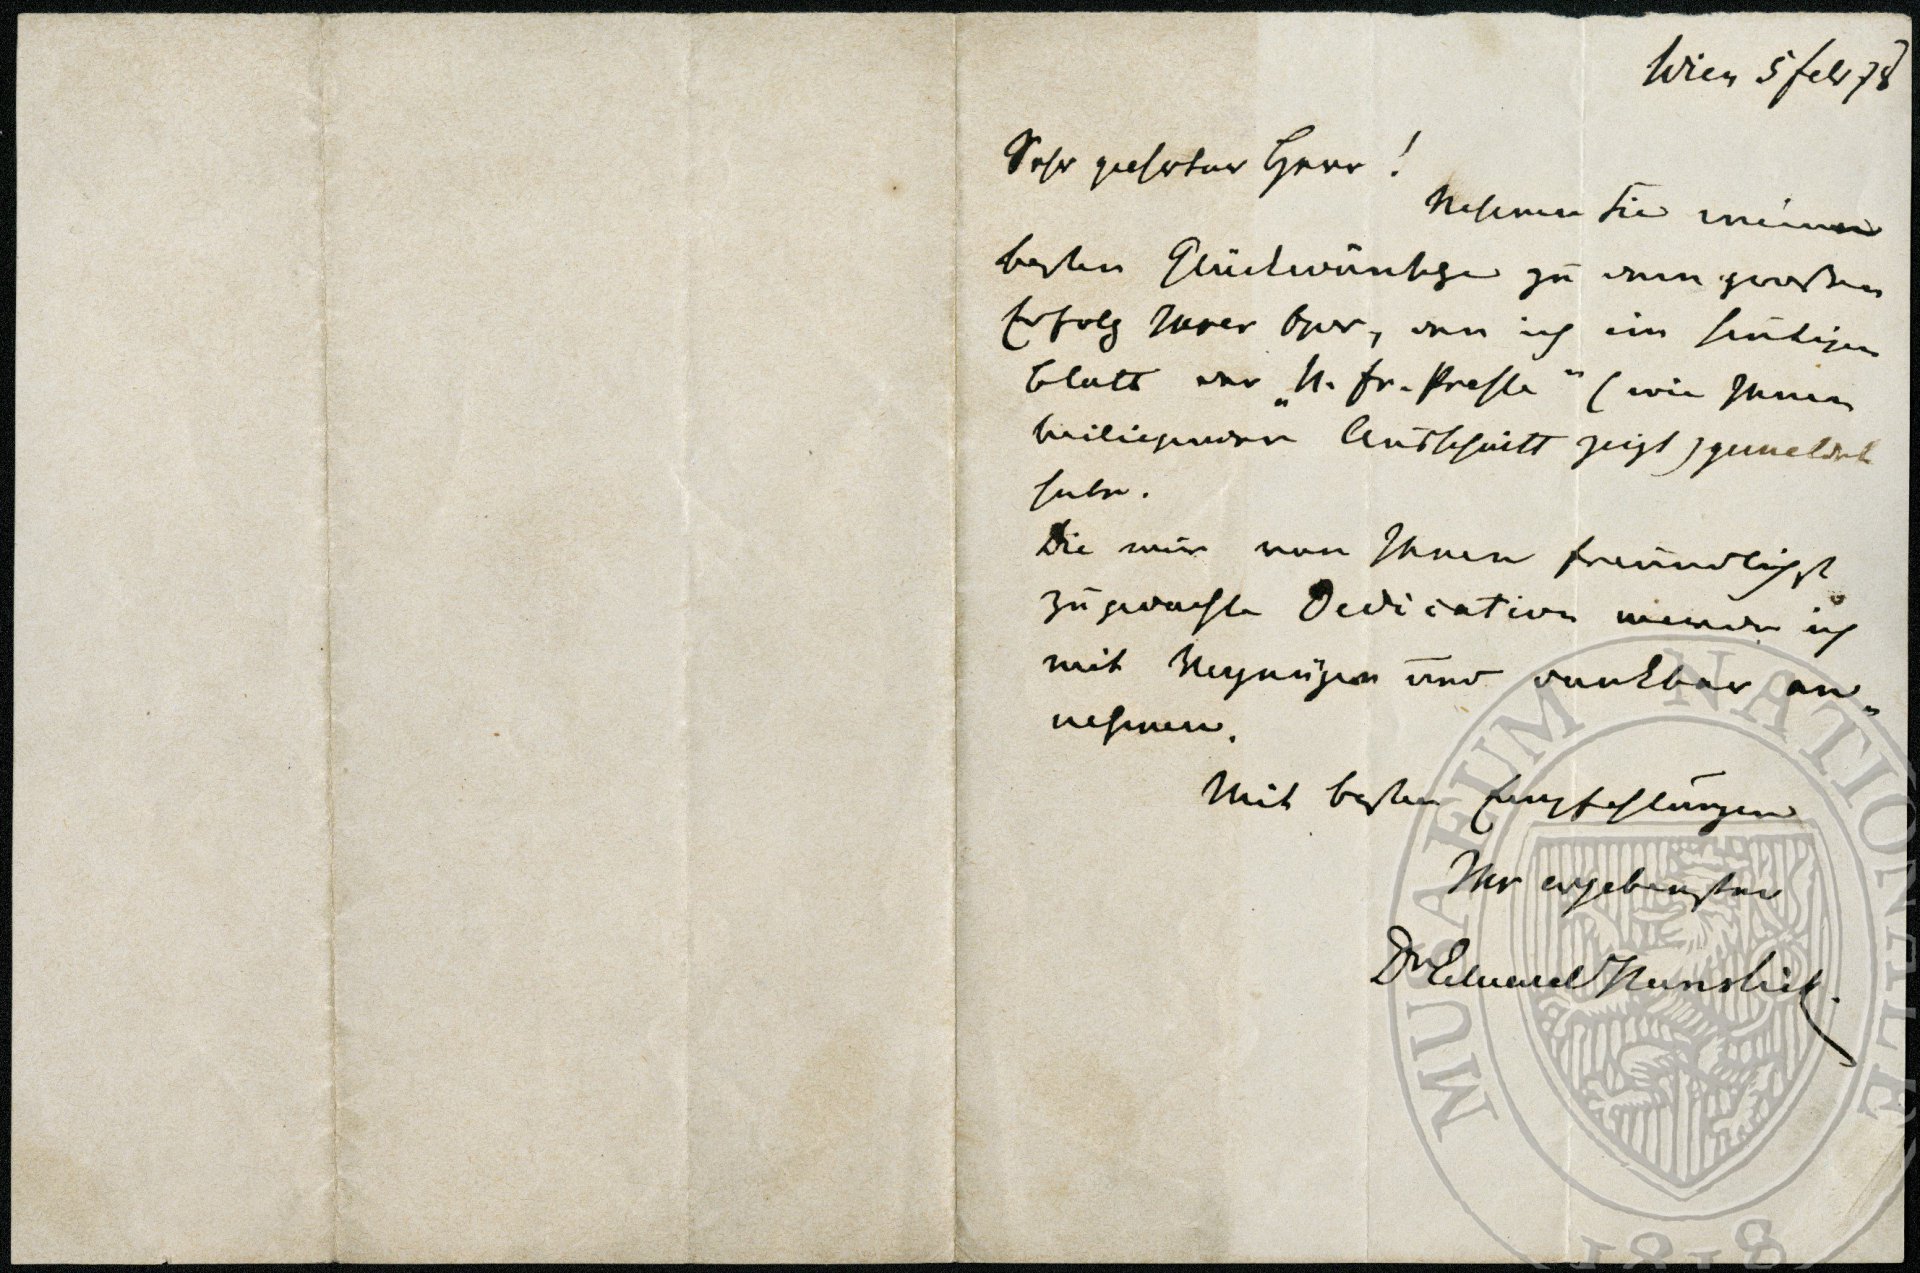 Wien 5 Feb 78
Sehr geehrter Herr!
Nehmen Sie meine
besten Glückwünsche zu dem großen
Erfolg Ihrer Oper, den ich im heutigen
Blatt der „N. fr. Presse“ (wie Ihnen
beiliegender Ausschnitt zeigt) gemeldet
habe.
Die mir von Ihnen freundlichst
zugedachte Dedication werde ich
mit Vergnügen und dankbar an-
nehmen.
Mit besten Empfehlungen
Ihr ergebenster
Dr Eduard Hanslick.
MUSAEUM NATIONALE
1818